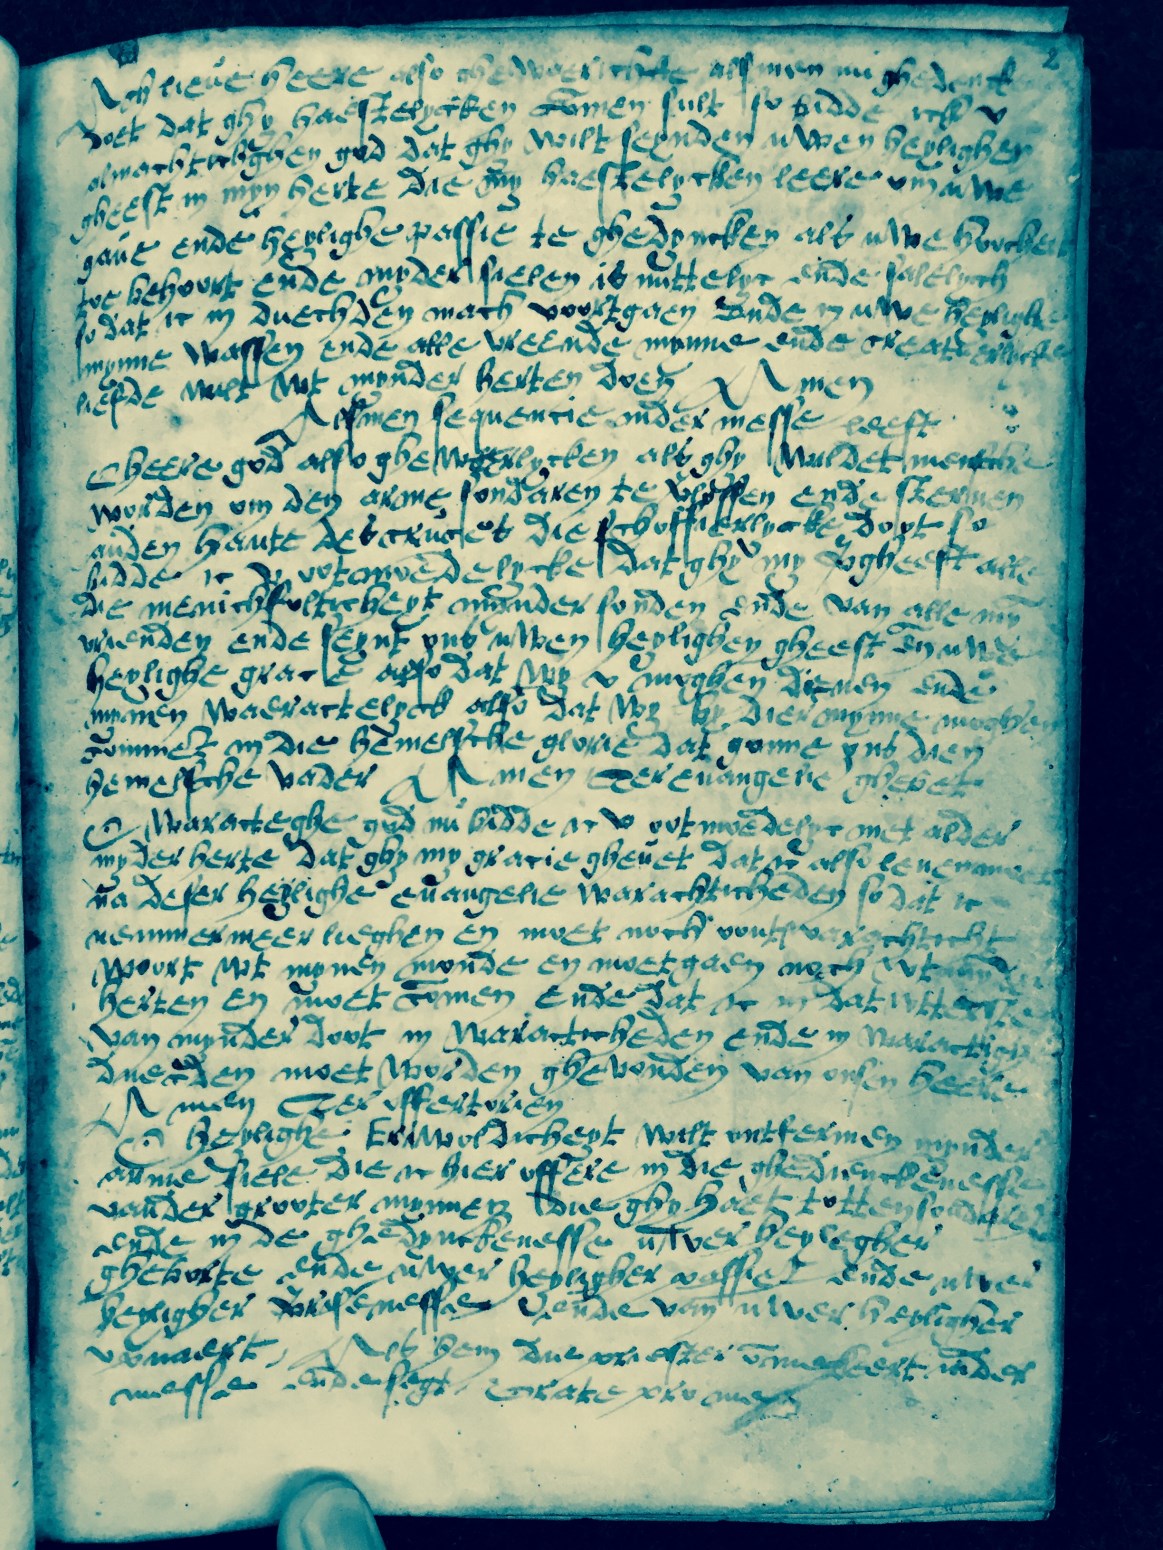 2
Ach lieve heere also ghewaerichte alsmen nu ghedenck
doet dat ghy haestelycken comen sult so bidde ick v
almachtichghen god dat ghy wilt seynden uwen heylighen
gheest in myn herte die my haestelycken leere om uwe
gave ende heylighe passie te ghedyncken als uwe hoocheit
toe behoort ende mynder sielen is nuttelyc ende salelych
so dat ic in duechden mach voortgaen Ende in uwe heylighe
mynne wassen ende alle vreemde mynne ende creatuerlycke
liefde wilt wt mynder herten doen Amen
Alsmen sequencie inder messe leest
O heere god also ghewaerlycken als ghy wildet mensche
worden om den arme sondaren te verlossen ende sterven
anden haute des cruces die schoffierlycke doot so
bidde ic v ootmoedelycke dat ghy my vergheeft alle
die menichfulticheyt mynder sonden ende van alle myn
vrienden ende seynt ons uwen heylighen gheest En uwe
heylighe gracie also dat wy v moghen dienen ende
mynnen waerachtelyck also dat wy by dier mynne moghen
commen in die hemelsche glorie dat gonne ons dien
hemelsche vader Amen Ter evangelie ghebet
O Waracteghe god nu bidde ic v ootmoedelyc met alder
mynder herte dat ghy my gracie ghevet dat ic also leven moet
na deser heylighe evangelie warachticheden so dat ic
nemmermeer lieghen en moet noch onwarachticht
woort wt mynen monde en moet gaen noch wt mynder
herten en moet comen Ende dat ic in dat wtterste
van mynder doot in waracticheden ende in waractigen
duechden moet worden ghevonden van onsen heere
Amen Ter offertorien
O heylighe Erwoldicheyt wilt ontfermen mynder
arme siele die ic hier offere in die ghedienckenesse
vander grooter mynnen die ghy haet totten sondaren
ende in de ghedynckenesse uwer heylegher
gheborte ende uwer heyligher passie ende uwer
heyligher verrisenesse ende van uwer heyligher
opvaert, Als hem die priester ommekeert inder
messe ende segt Orate pro me